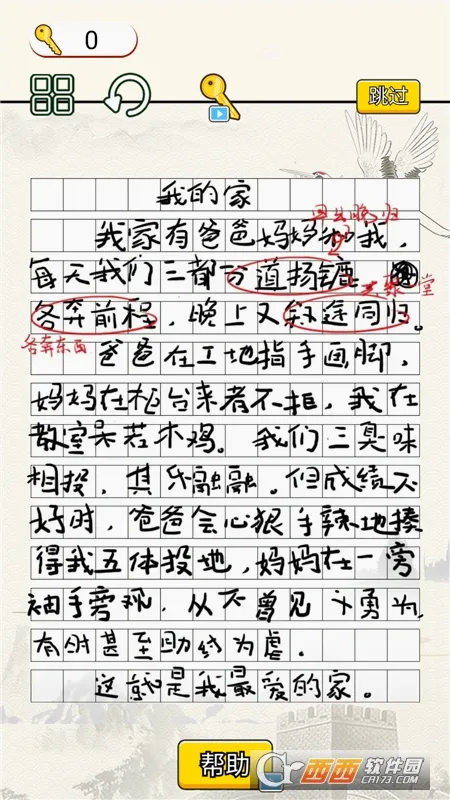 0
跳过
我的家
早出晚归
我家有爸爸妈妈和我，
每天我们三都分道扬镳，
共聚一堂
各奔前程，晚上又殊途同归。
各奔东西
爸爸在工地指手画脚，
妈妈在柜台来者不拒，我在
教室呆若木鸡。我们三臭味
相投，其乐融融。但成绩不
好时，爸爸会心狠手辣地揍
得我五体投地，妈妈在一旁
袖手旁观，从不曾见义勇为，
有时甚至助纣为虐。
这就是我最爱的家。
帮助
西西软件园
CR173.COM